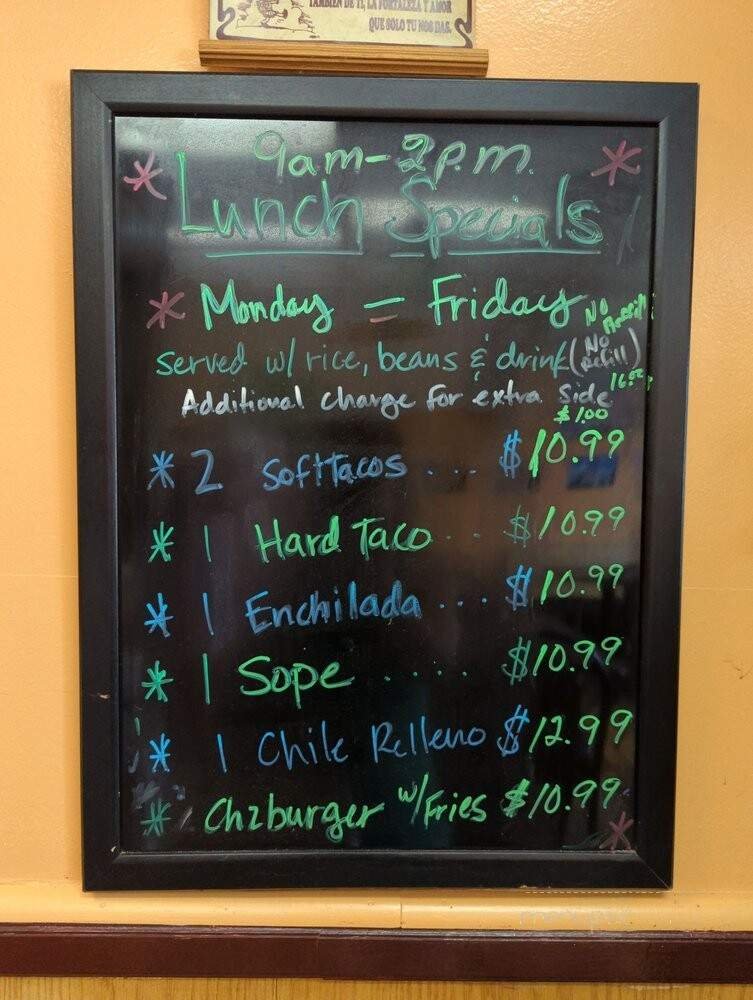 TAMBIEN DE TI, LA FORTALEZA Y AMOR
QUE SOLO TU NOS DAS.
9am-2p.m.
Lunch Specials
Monday - Friday
No Refill
served w/ rice, beans & drink (No Refill)
16oz
Additional charge for extra side
$1.00
2 Soft Tacos ... $10.99
1 Hard Taco .. $10.99
1 Enchilada ... $10.99
1 Sope ..... $10.99
1 Chile Relleno $12.99
Chzburger w/Fries $10.99